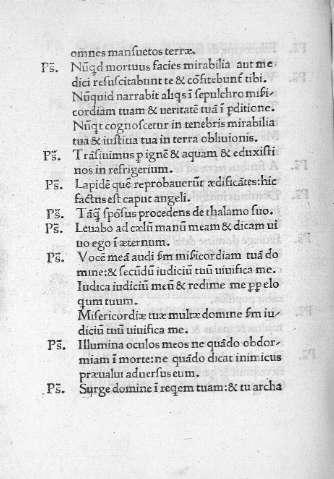 omnes mansuetos terræ.
Ps̄. Nūqd mortuus facies mirabilia aut me
dici resuscitabunt te & cōfitebunt̄ tibi.
Nunquid narrabit aliqs ī sepulchro misi-
cordiam tuam & veritatē tuā ī pditione.
Nūqt cognoscetur in tenebris mirabilia
tua & iustitia tua in terra obliuionis.
Ps̄. Trāsiuimus p ignē & aquam & eduxisti
nos in refrigerium.
Ps̄. Lapidē quē reprobauerūt ædificātes: hic
factus est caput angeli.
Ps̄. Tāq̄ spōsus procedens de thalamo suo.
Ps̄. Leuabo ad cælū manū meam & dicam ui
uo ego ī æternum.
Ps̄. Vocē meā audi s̄m misicordiam tuā do
mine: & secūdū iudiciū tuū uiuifica me.
Iudica iudiciū meū & redime me pp elo
quium tuum.
Misericordiæ tuæ multæ domine s̄m iu-
diciū tuū uiuifica me.
Ps̄. Illumina oculos meos ne quādo obdor-
miam ī morte: ne quādo dicat inimicus
præualui aduersus eum.
Ps̄. Surge domine ī reqem tuam: & tu archa